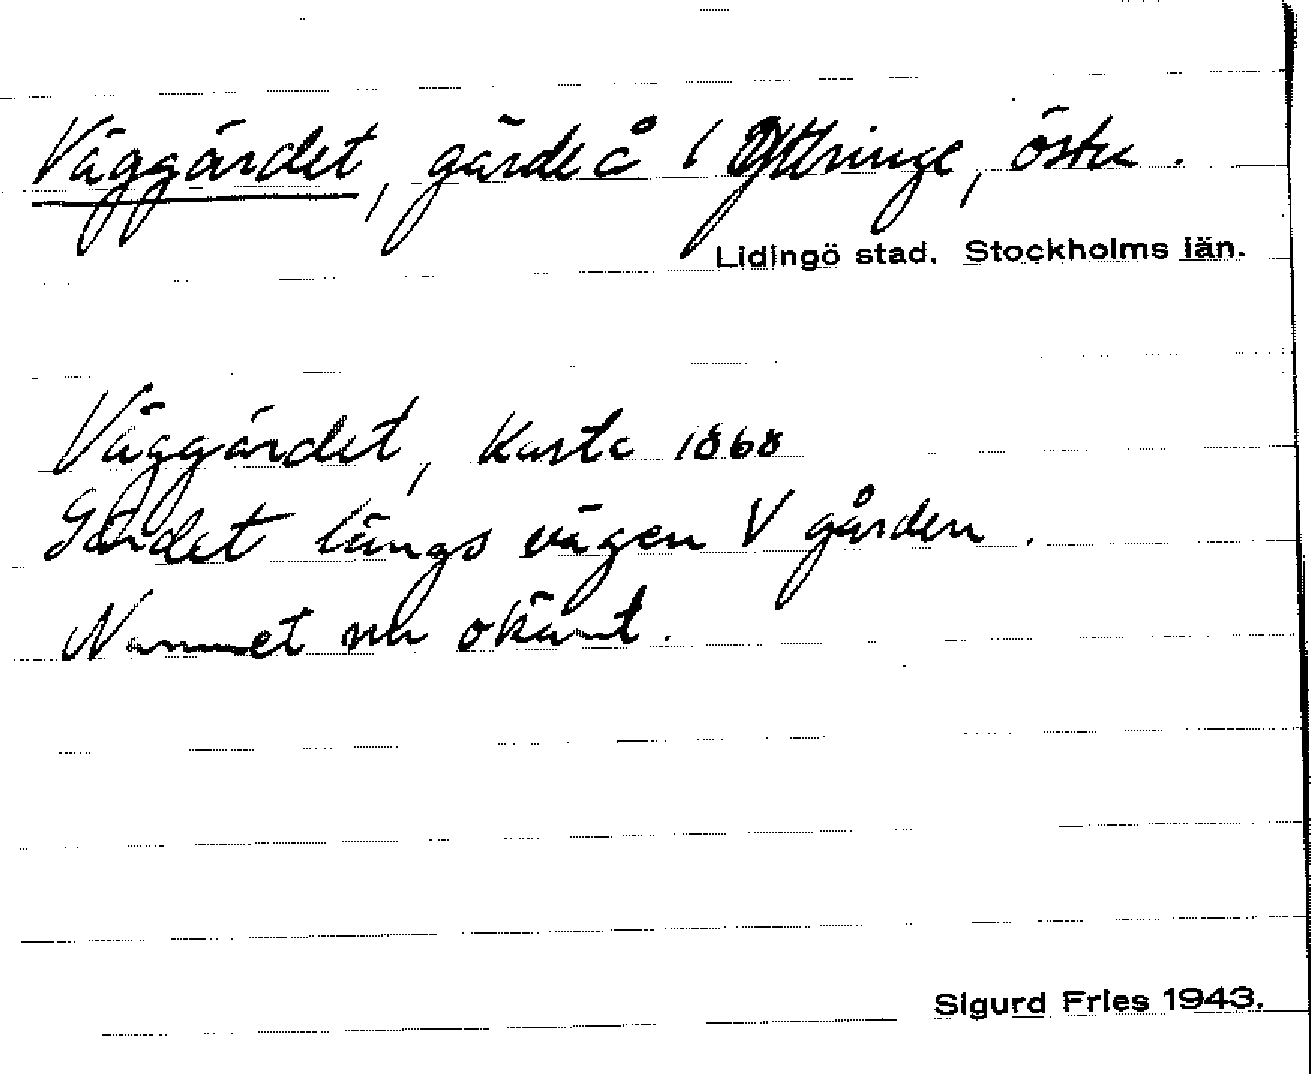 Väggärdet, gärde å Yttringe, östra.
Lidingö stad. Stockholms län.
Väggärdet, Karta 1868
Gärdet längs vägen V gården.
Namnet nu okänt.
Sigurd Fries 1943.